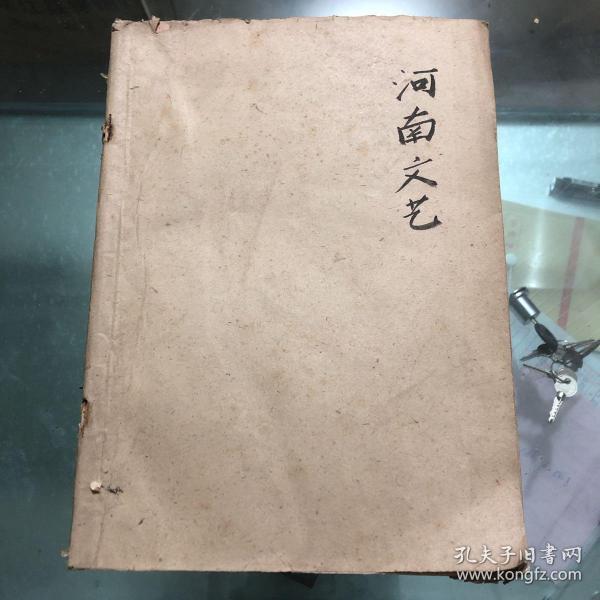 河南文艺
孔夫子旧书网
www.kongfz.com